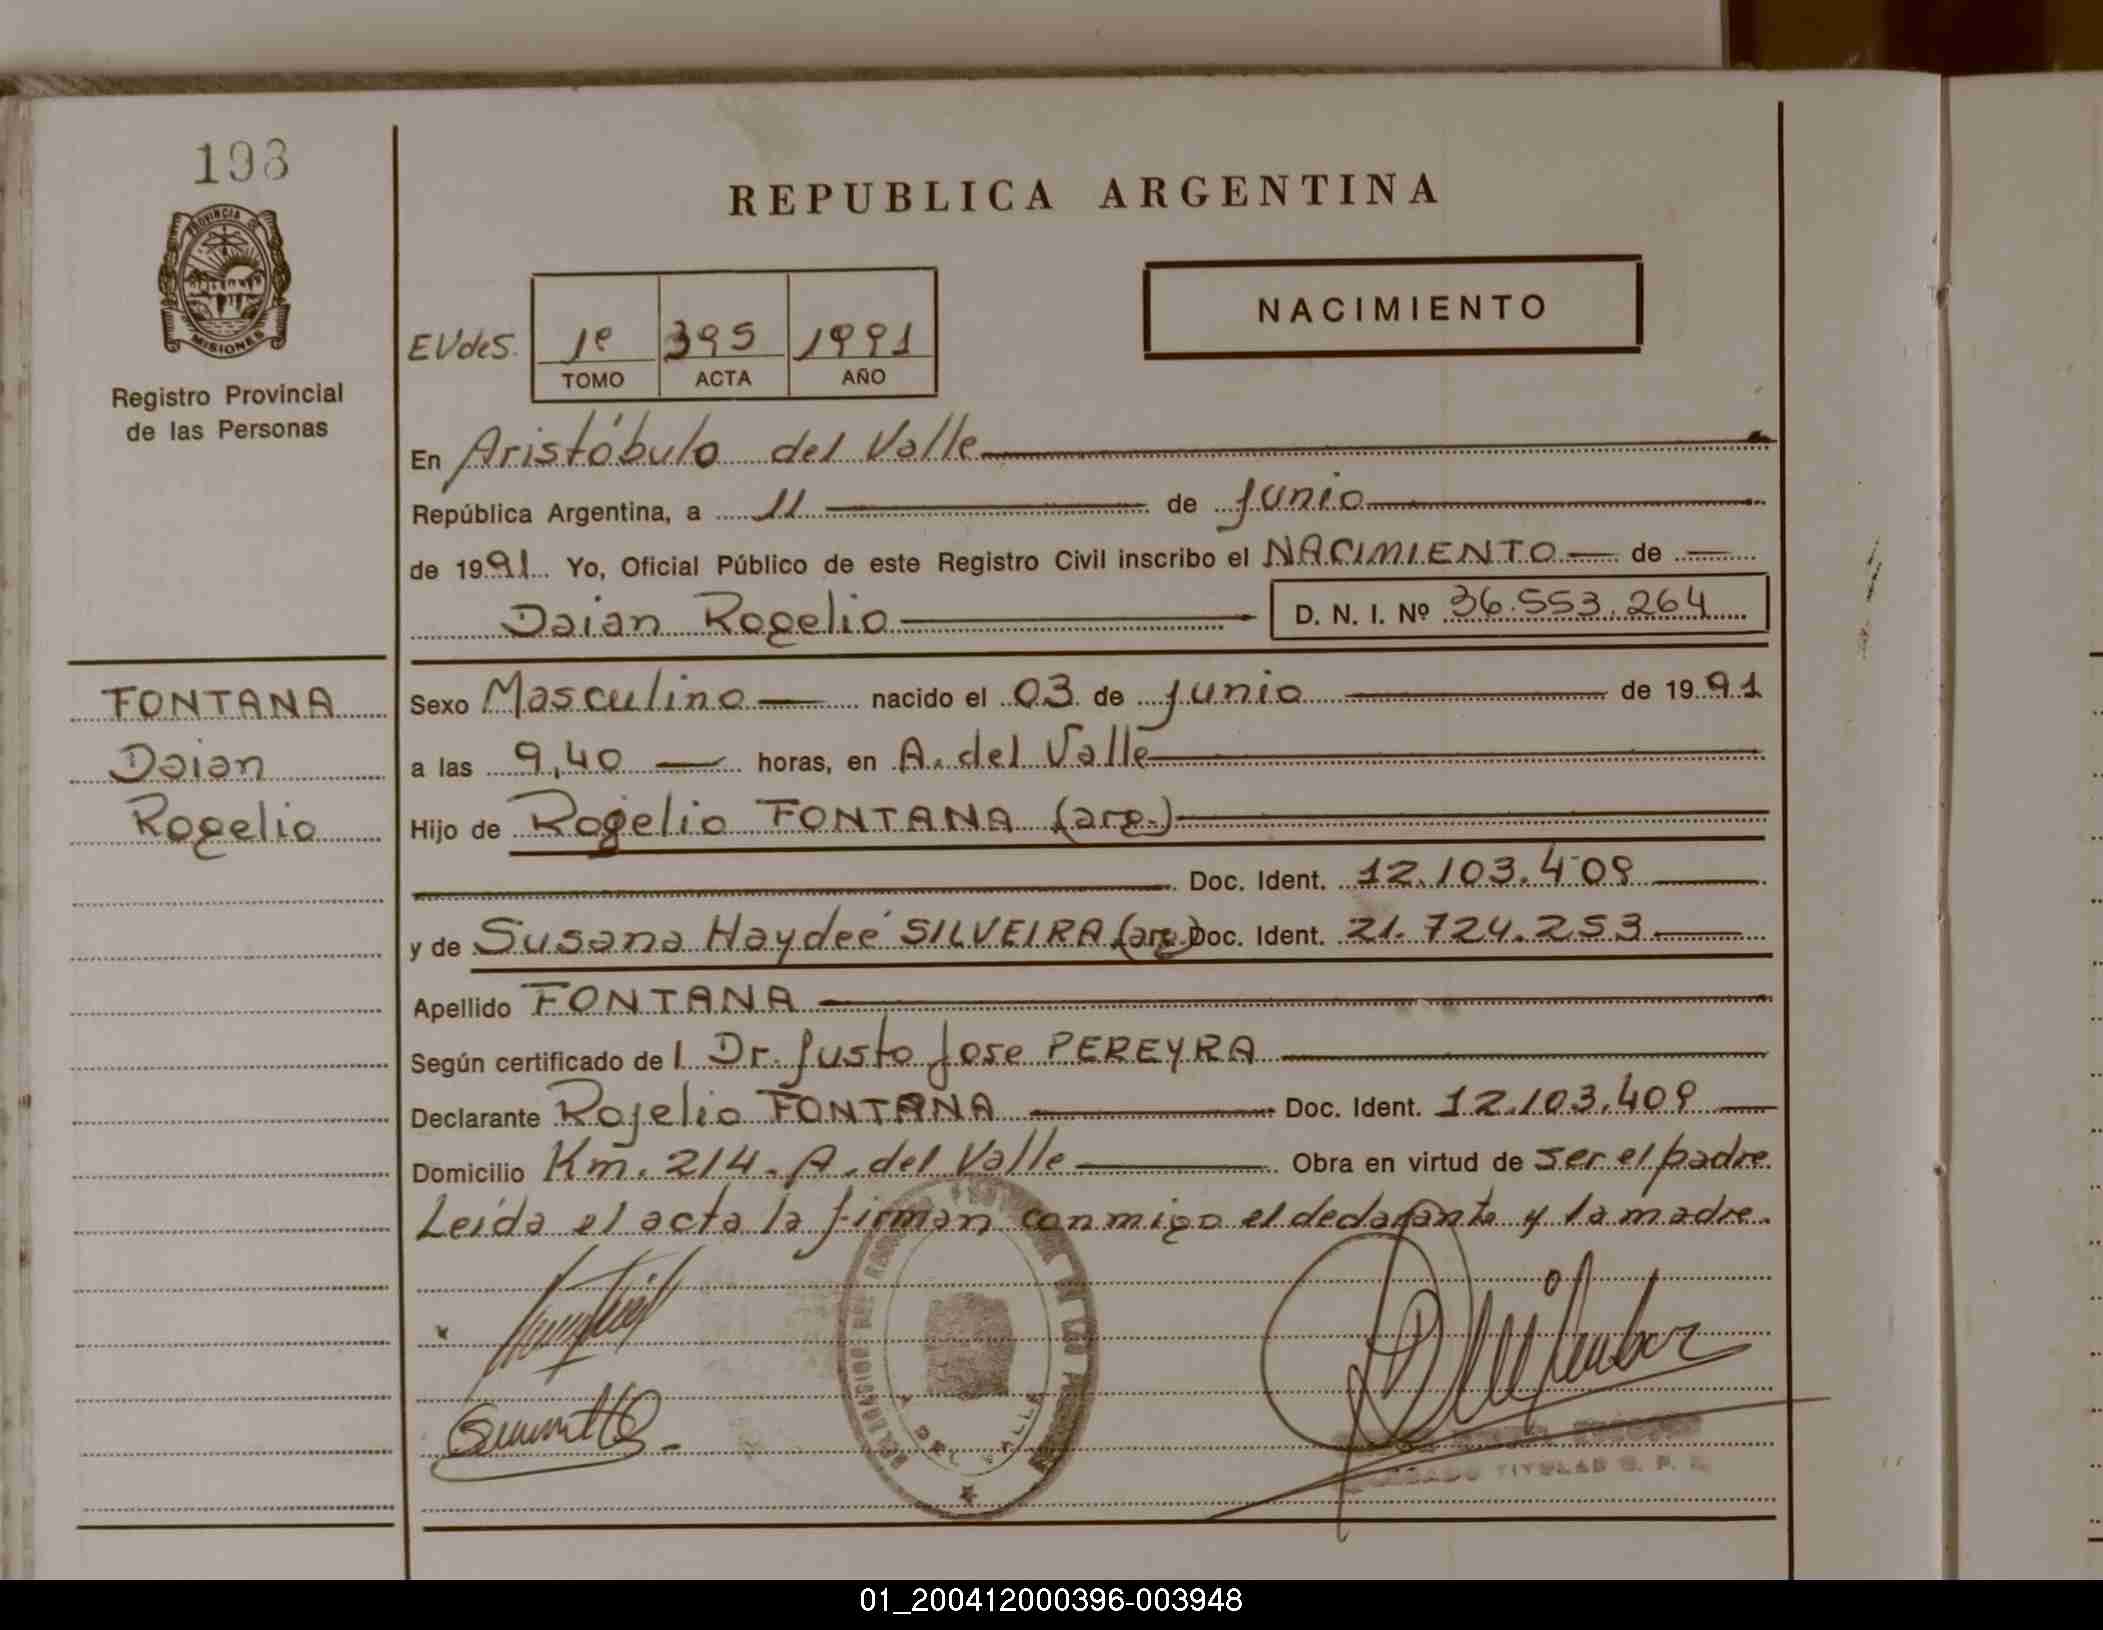 198
PROVINCIA DE
MISIONES
Registro Provincial
de las Personas
REPUBLICA ARGENTINA
NACIMIENTO
EVdeS. 1º 395 1991
TOMO ACTA AÑO
En Aristóbulo del Valle
República Argentina, a 11 de junio
de 1991 Yo, Oficial Público de este Registro Civil inscribo el NACIMIENTO de
Daian Rogelio D. N. I. Nº 36.553.264
FONTANA
Daian
Rogelio
Sexo Masculino nacido el 03 de junio de 1991
a las 9,40 horas, en A. del Valle
Hijo de Rogelio FONTANA (arg.)
Doc. Ident. 12.103.409
y de Susana Haydeé SILVEIRA (arg.) Doc. Ident. 21.724.253
Apellido FONTANA
Según certificado del Dr. Justo Jose PEREYRA
Declarante Rojelio FONTANA Doc. Ident. 12.103.409
Domicilio Km. 214. A. del Valle Obra en virtud de ser el padre.
Leída el acta la firman conmigo el declarante y la madre.
A. DEL VALLE
TITULAR
01_200412000396-003948